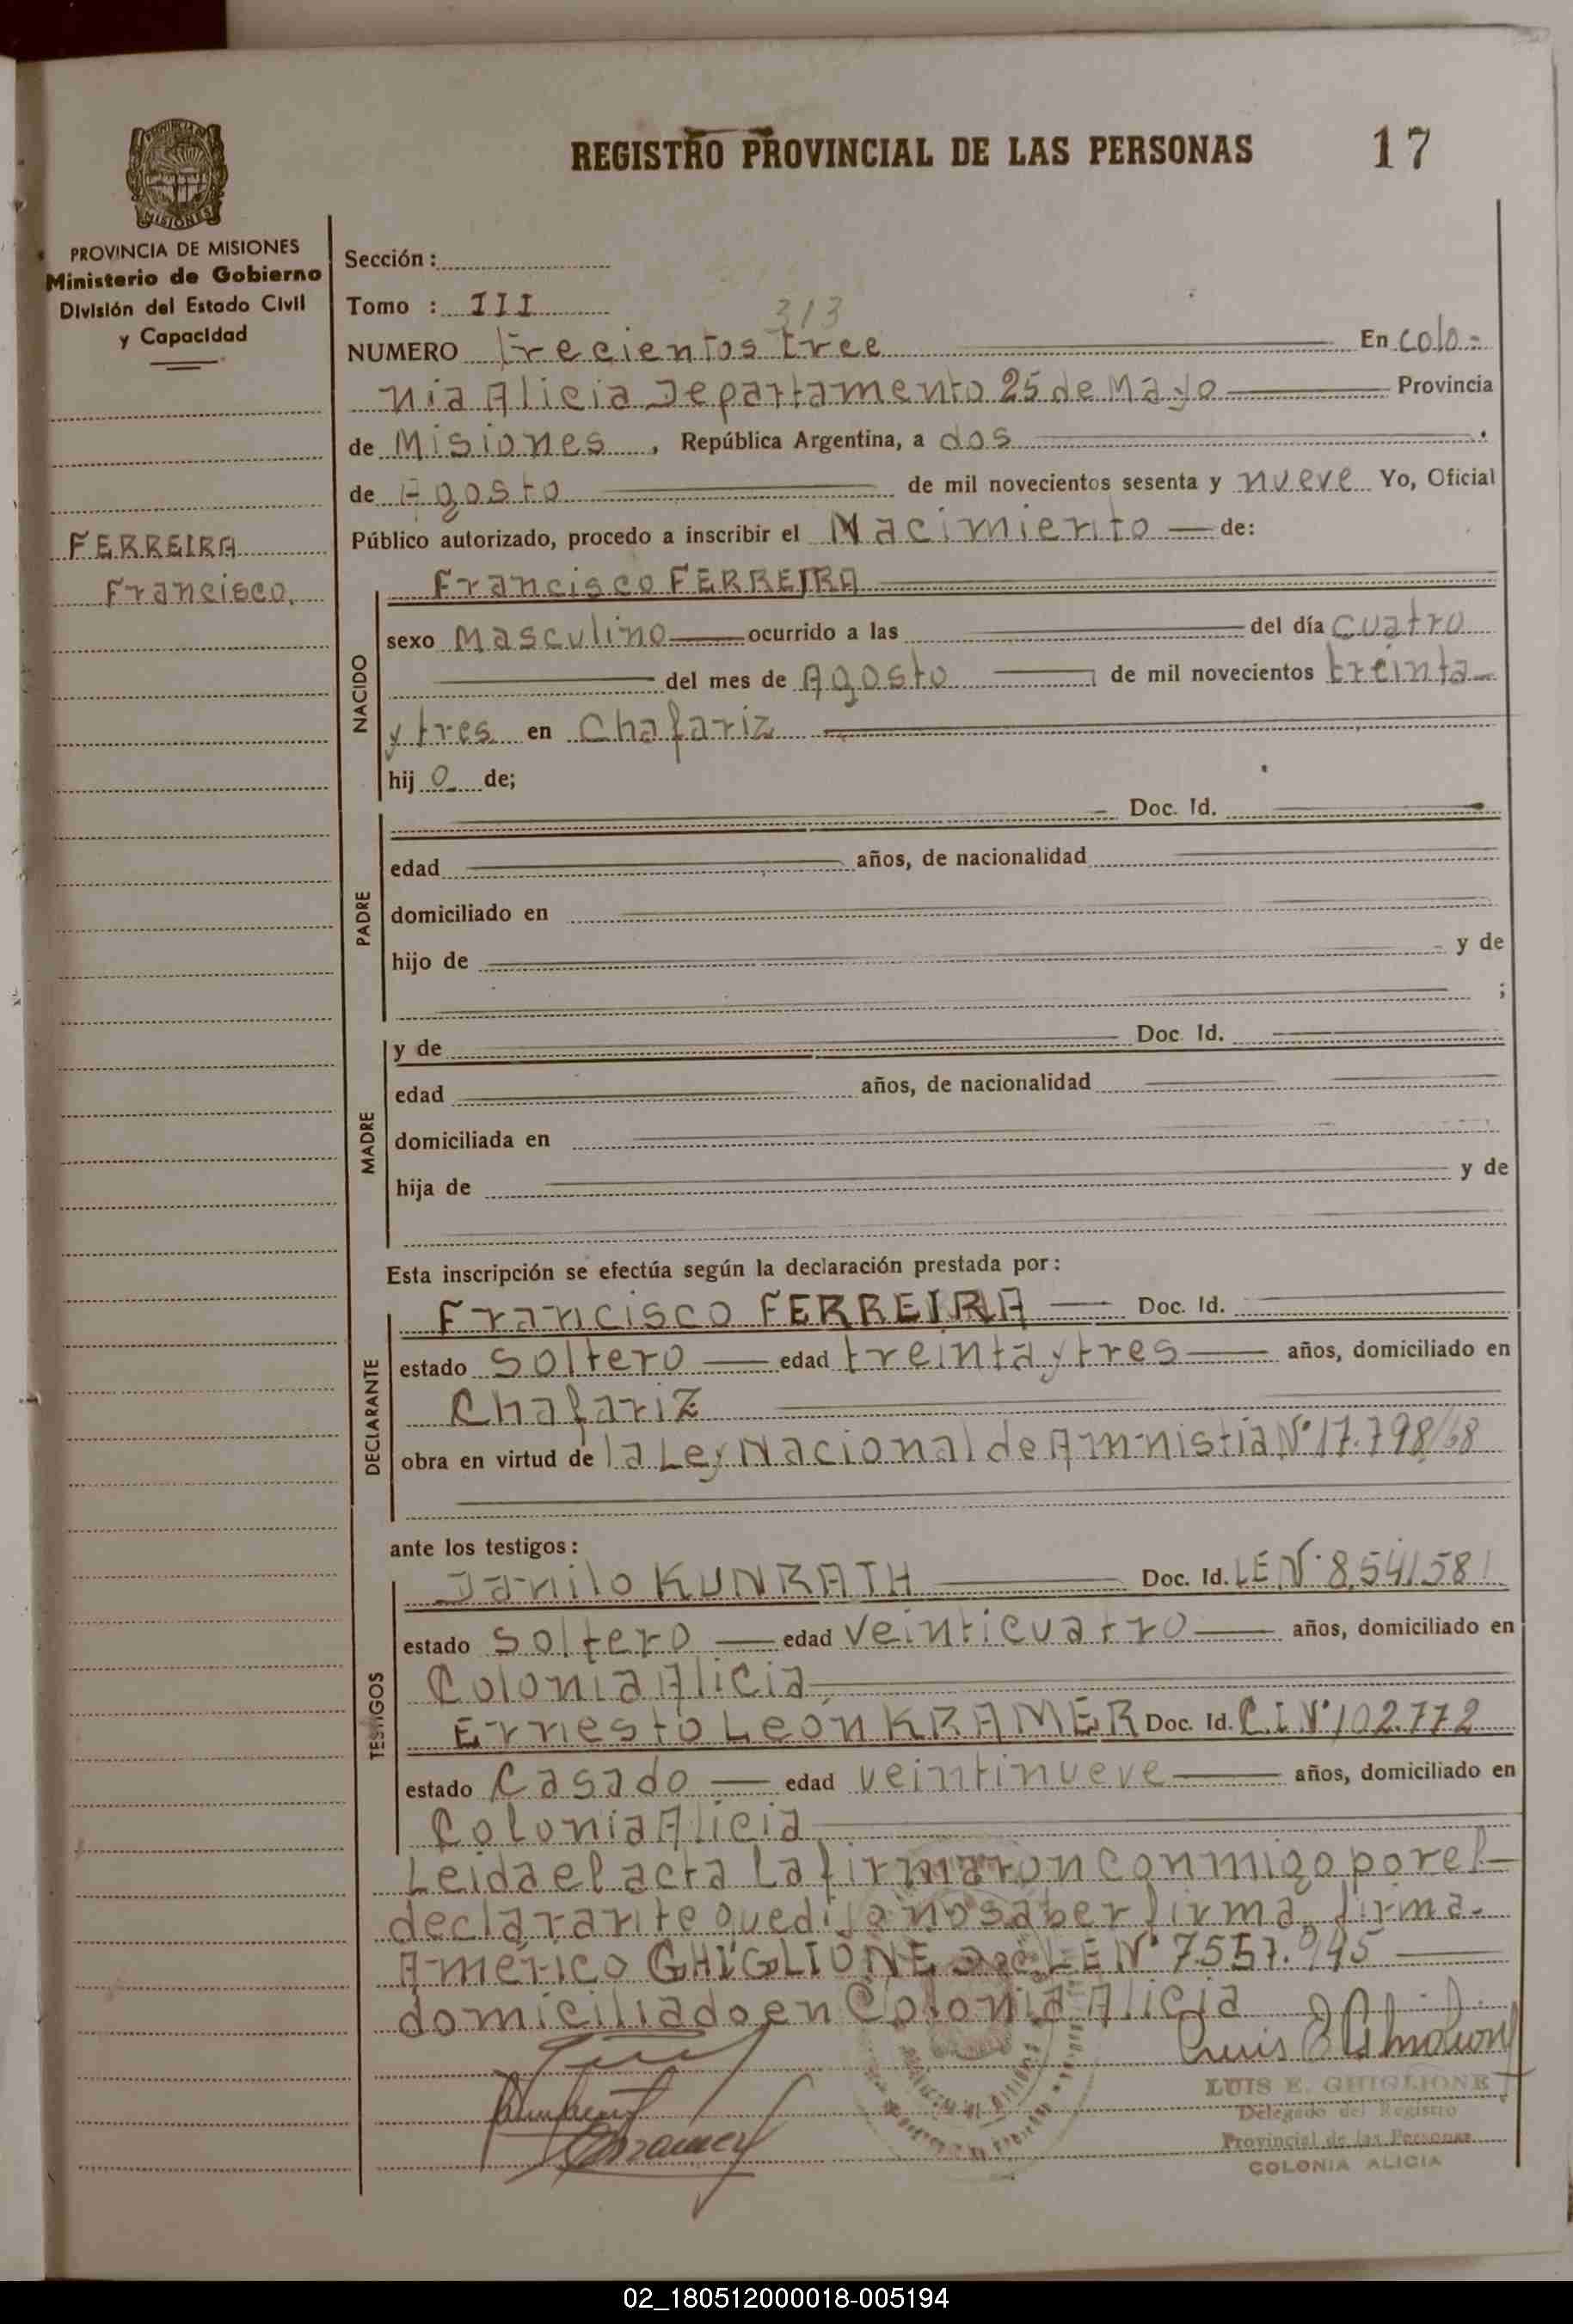 REGISTRO PROVINCIAL DE LAS PERSONAS
17
PROVINCIA DE MISIONES
Ministerio de Gobierno
División del Estado Civil
y Capacidad
FERREIRA
Francisco.
Sección :
Tomo : III
313
NUMERO trecientos tree En Colo-
nia Alicia Departamento 25 de Mayo Provincia
de Misiones , República Argentina, a dos
de Agosto de mil novecientos sesenta y nueve Yo, Oficial
Público autorizado, procedo a inscribir el Nacimiento de:
NACIDO
Francisco FERREIRA
sexo Masculino ocurrido a las del día cuatro
del mes de Agosto de mil novecientos treinta
y tres en Chafariz
hijo de;
PADRE
Doc. Id.
edad años, de nacionalidad
domiciliado en
hijo de y de
;
MADRE
y de Doc. Id.
edad años, de nacionalidad
domiciliada en
hija de y de
Esta inscripción se efectúa según la declaración prestada por :
DECLARANTE
Francisco FERREIRA Doc. Id.
estado Soltero edad treinta y tres años, domiciliado en
Chafariz
obra en virtud de la Ley Nacional de Amnistia Nº 17.798/68
ante los testigos :
TESTIGOS
Danilo KUNRATH Doc. Id. LE Nº 8.541581
estado Soltero edad veinticuatro años, domiciliado en
Colonia Alicia
Ernesto León KRAMER Doc. Id. C.I. Nº 102.772
estado Casado edad veintinueve años, domiciliado en
Colonia Alicia
Leida el acta La firmaron conmigo por el
declarante que dijo no saber firma, firma-
Américo GHIGLIONE Doc LE Nº 7557.945
domiciliado en Colonia Alicia
Kramer
LUIS E. GHIGLIONE
Delegado del Registro
Provincial de las Personas
COLONIA ALICIA
02_180512000018-005194